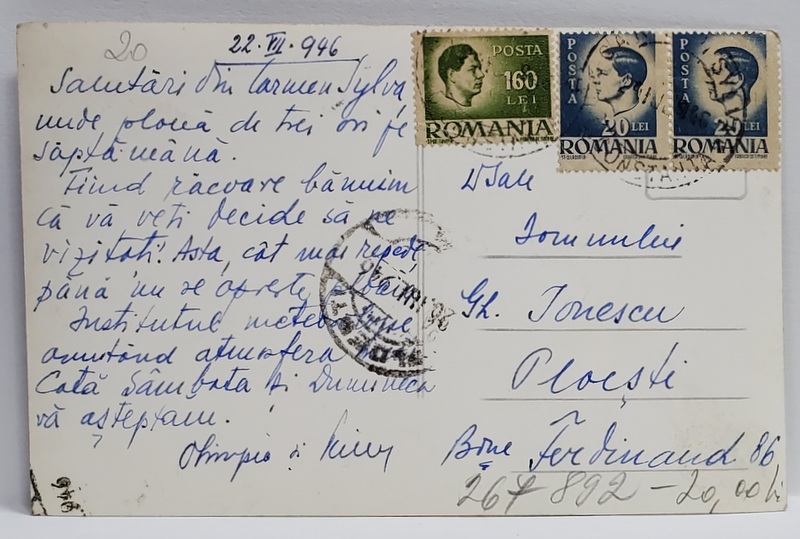 20
22.VII.946
Salutări din Carmen Sylva
unde plouă de trei ori pe
săptămână.
Fiind răcoare bănuim
că vă veți decide să ne
vizitați! Asta, cât mai repede
până nu se oprește
Institutul
anunțând atmosfera
Sâmbăta și Dumineca
vă așteptam.
Olimpia și
POSTA
160
LEI
ROMANIA
POSTA
20 LEI
ROMANIA
POSTA
20 LEI
ROMANIA
CONSTANTA
DSale
Domnului
Gh. Ionescu
Ploești
Ferdinand 86
267 892 - 20,00 li
946